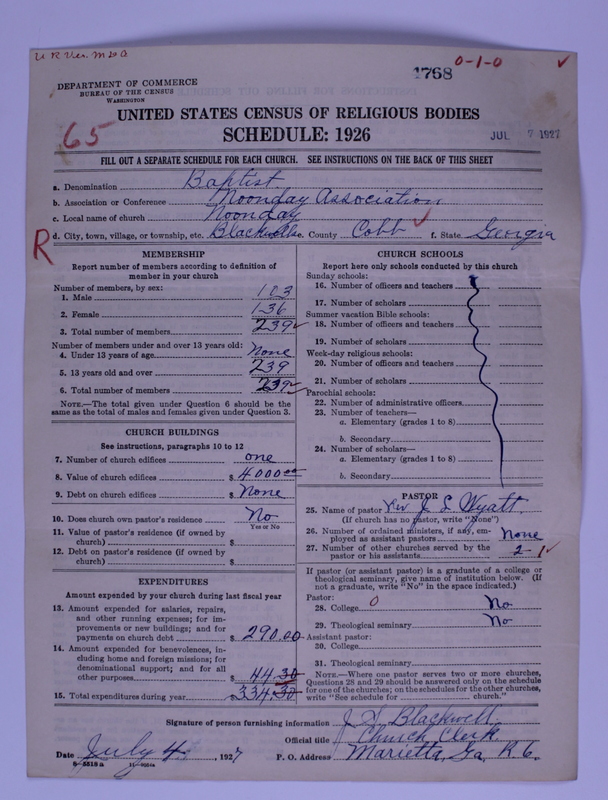 U R Ver. M & A
4768
0-1-0 ✓
DEPARTMENT OF COMMERCE
BUREAU OF THE CENSUS
WASHINGTON
65
UNITED STATES CENSUS OF RELIGIOUS BODIES
SCHEDULE: 1926
JUL 7 1927
FILL OUT A SEPARATE SCHEDULE FOR EACH CHURCH. SEE INSTRUCTIONS ON THE BACK OF THIS SHEET
a. Denomination Baptist
b. Association or Conference Noonday Association
c. Local name of church Noonday
R
d. City, town, village, or township, etc. Blackwells e. County Cobb f. State Georgia
MEMBERSHIP
Report number of members according to definition of
member in your church
Number of members, by sex:
1. Male 103
2. Female 136
3. Total number of members 239
Number of members under and over 13 years old:
4. Under 13 years of age None
5. 13 years old and over 239
6. Total number of members 239
NOTE.—The total given under Question 6 should be the
same as the total of males and females given under Question 3.
CHURCH BUILDINGS
See instructions, paragraphs 10 to 12
7. Number of church edifices one
8. Value of church edifices $ 4000.00
9. Debt on church edifices $ None
10. Does church own pastor's residence No
Yes or No
11. Value of pastor's residence (if owned by
church) $
12. Debt on pastor's residence (if owned by
church) $
EXPENDITURES
Amount expended by your church during last fiscal year
13. Amount expended for salaries, repairs,
and other running expenses; for im-
provements or new buildings; and for
payments on church debt $ 290.00
14. Amount expended for benevolences, in-
cluding home and foreign missions; for
denominational support; and for all
other purposes $ 44.30
15. Total expenditures during year 334.30
CHURCH SCHOOLS
Report here only schools conducted by this church
Sunday schools:
16. Number of officers and teachers
17. Number of scholars
Summer vacation Bible schools:
18. Number of officers and teachers
19. Number of scholars
Week-day religious schools:
20. Number of officers and teachers
21. Number of scholars
Parochial schools:
22. Number of administrative officers
23. Number of teachers—
a. Elementary (grades 1 to 8)
b. Secondary
24. Number of scholars—
a. Elementary (grades 1 to 8)
b. Secondary
PASTOR
25. Name of pastor Rev J. L Wyatt.
(If church has no pastor, write "None")
26. Number of ordained ministers, if any, em-
ployed as assistant pastors None
27. Number of other churches served by the
pastor or his assistants 2
If pastor (or assistant pastor) is a graduate of a college or
theological seminary, give name of institution below. (If
not a graduate, write "No" in the space indicated.)
Pastor:
28. College 0 No
29. Theological seminary No
Assistant pastor:
30. College
31. Theological seminary
NOTE.—Where one pastor serves two or more churches,
Questions 28 and 29 should be answered only on the schedule
for one of the churches; on the schedules for the other churches,
write "See schedule for church."
Signature of person furnishing information J. H Blackwell
Official title Church Clerk.
Date July 4, 1927 P. O. Address Marietta, Ga. R 6.
8—5518 a